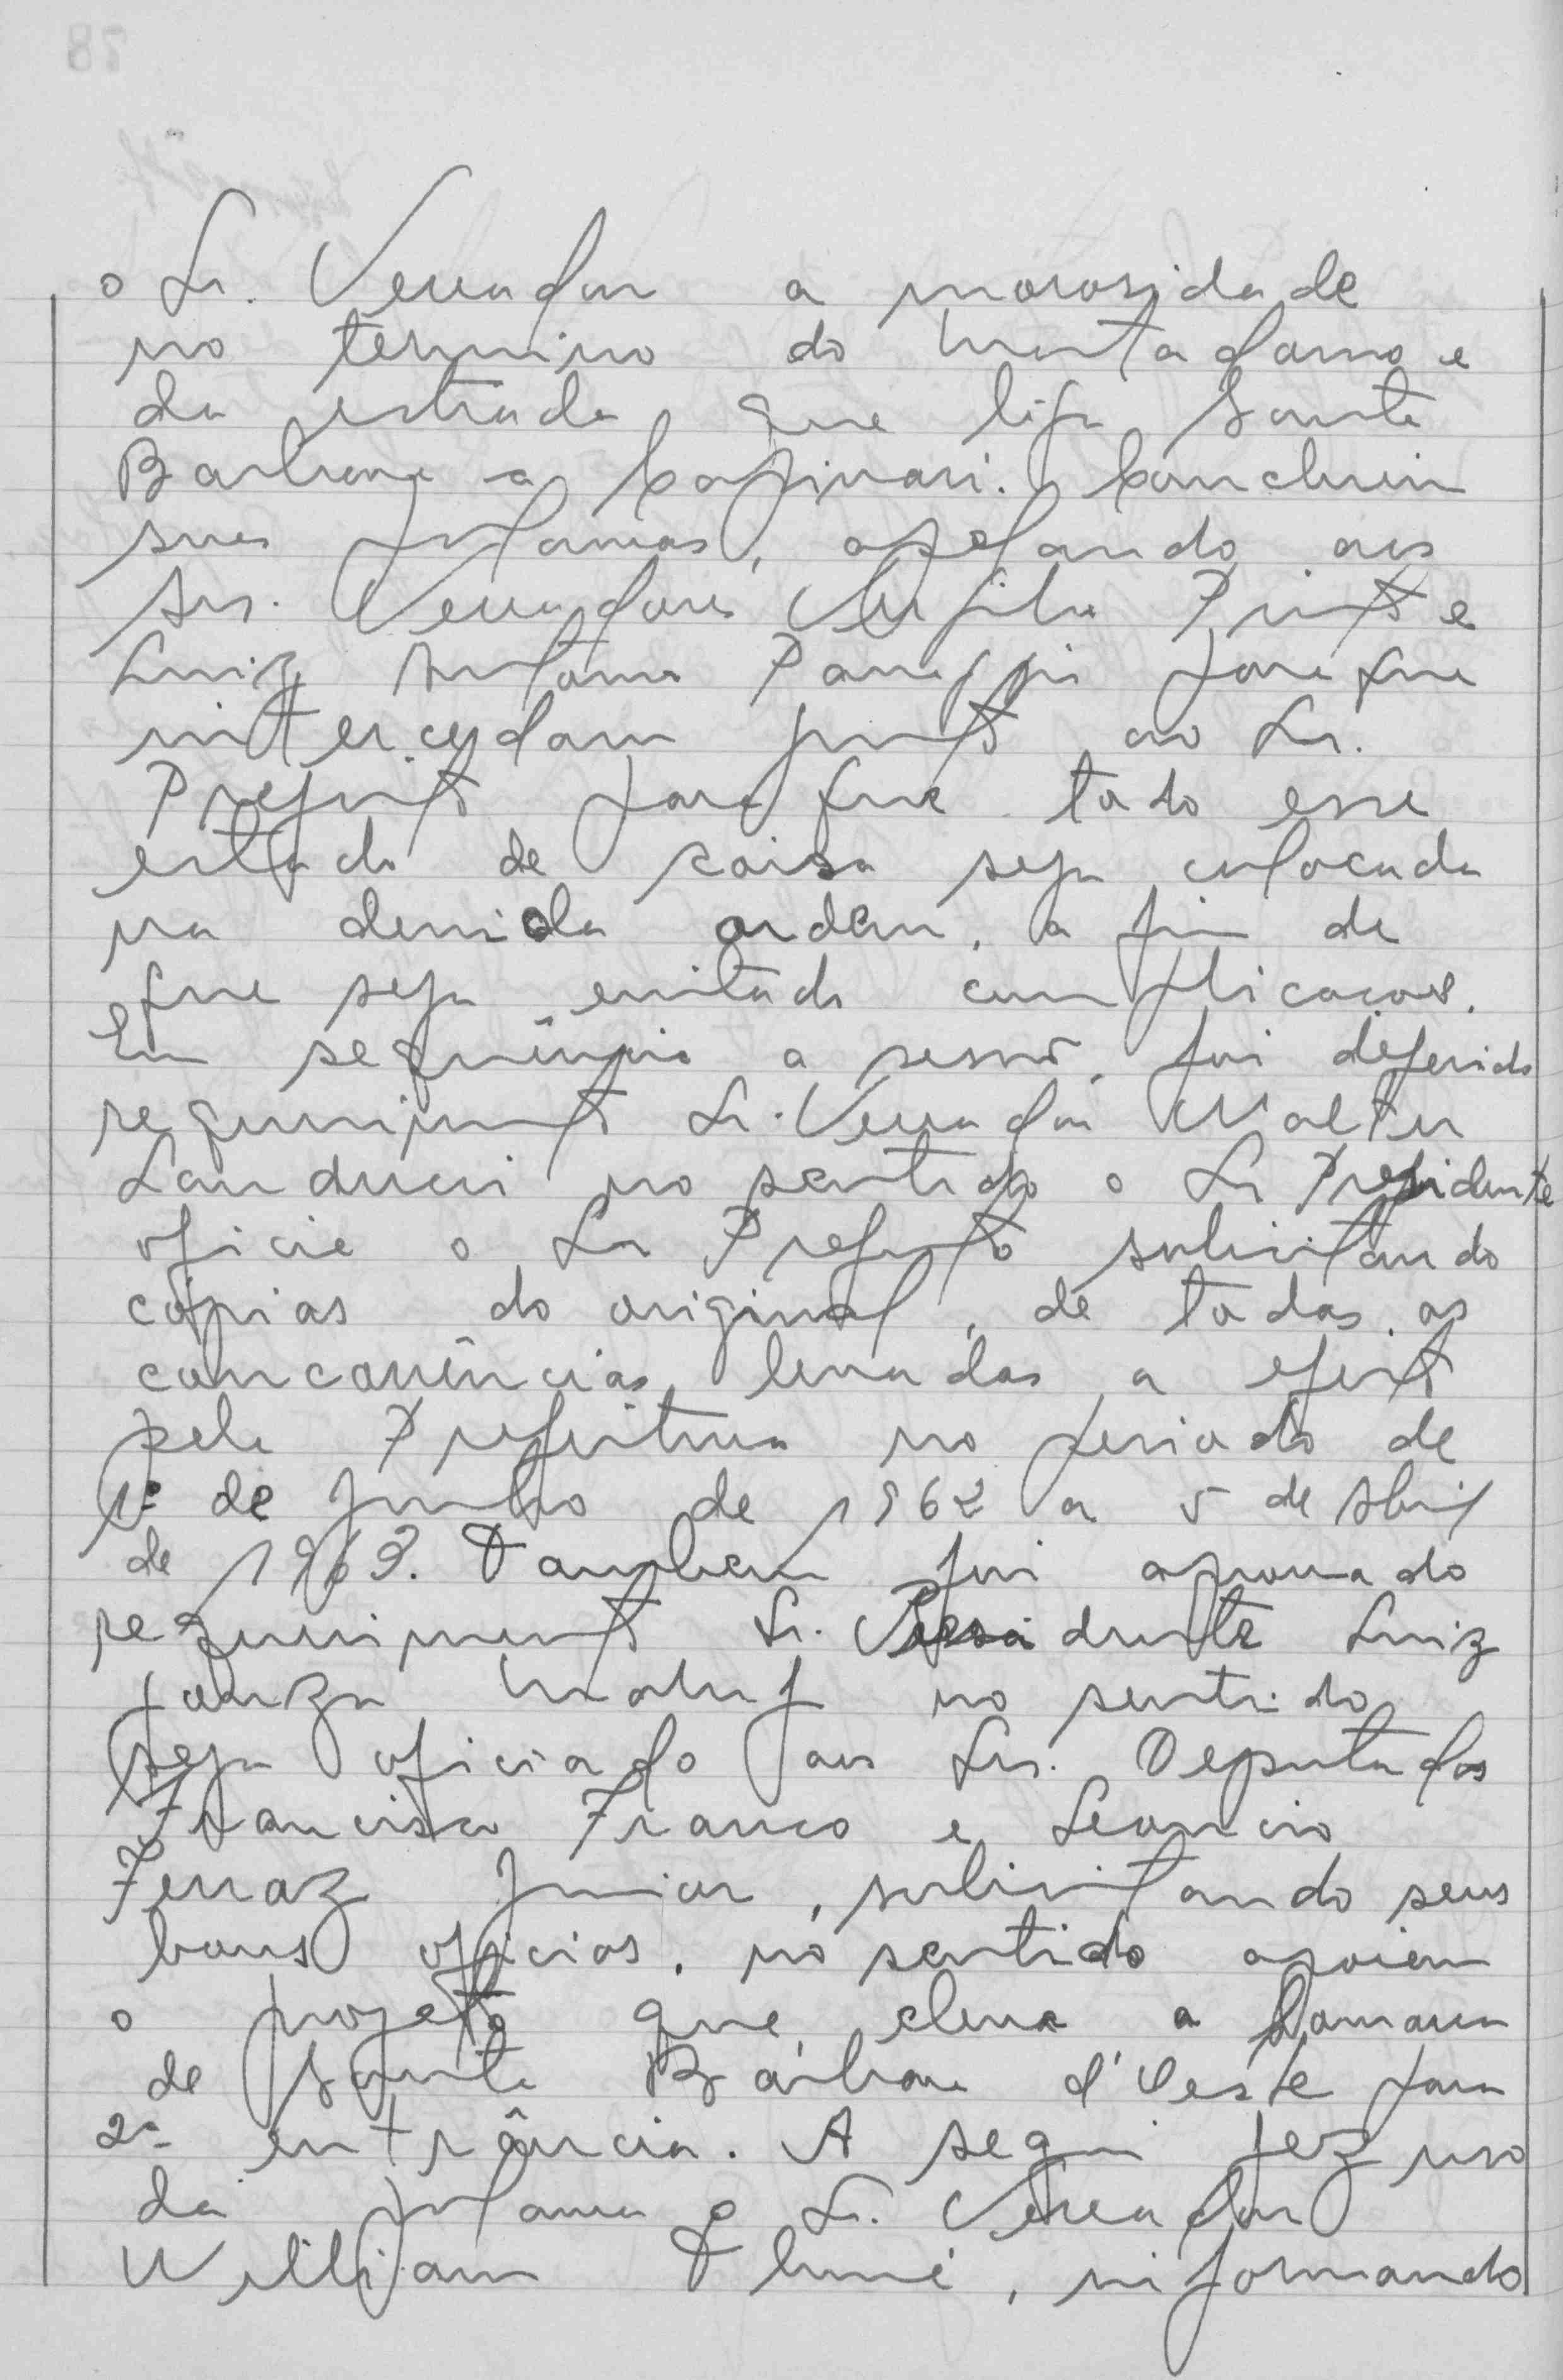 o Sr. Vereador a morosidade
no termino do matadouro e
da estrada que liga Santa
Barbara a Capivari. Concluiu
suas palavras, apelando aos
Srs. Vereadores Virgilio Pinto e
Luiz Antonio Panaggio para que
intercedam junto ao Sr.
Prefeito para que todo esse
estado de coisa seja colocada
na devida ordem, a fim de
que seja evitado complicacoes.
Em seqüência a sessão, foi deferido
requerimento Sr. Vereador Walter
Landucci no sentido o Sr Presidente
oficie o Sr Prefeito solicitando
cópias do original, de todas as
concorrências levadas a efeito
pela Prefeitura no periodo de
1º de Junho de 1962 a 5 de Abril
de 1963. Tambem foi aprovado
requerimento Sr. Presidente Luiz
Maluf no sentido
seja oficiado aos Srs. Deputados
Francisco Franco e Leoncio
Ferraz Junior, solicitando seus
bons oficios, no sentido apoiem
o projeto que eleva a Comarca
de Santa Bárbara d'Oeste para
2ª entrância. A seguir fez uso
da palavra o Sr. Vereador
William , informando